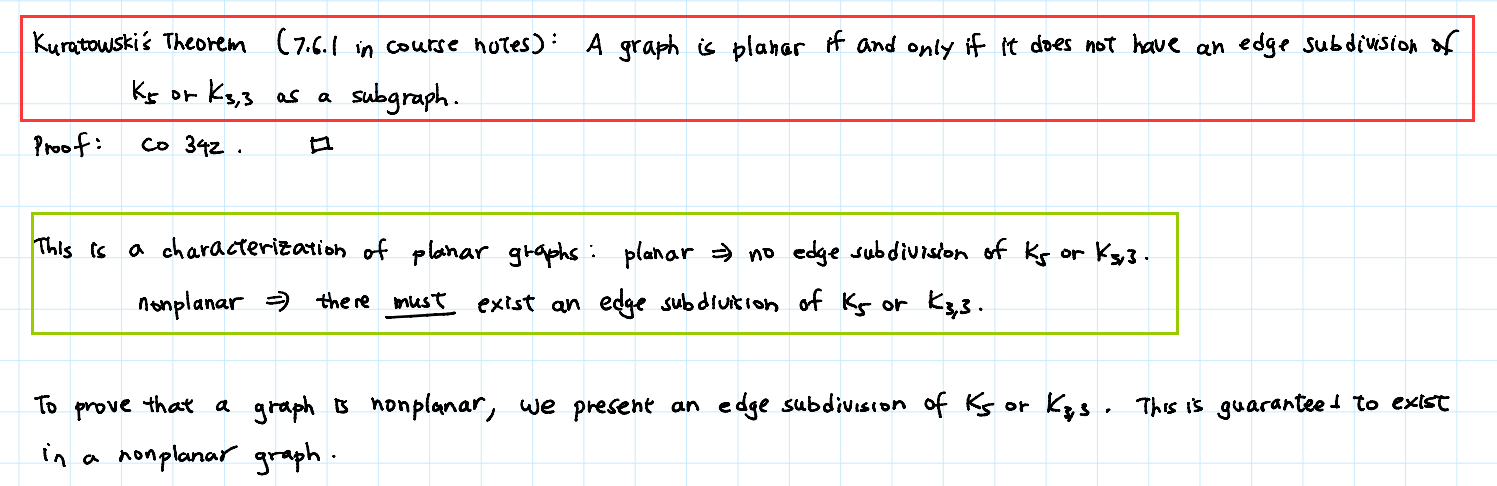 Kuratowski's Theorem (7.6.1 in course notes): A graph is planar if and only if it does not have an edge subdivision of
K5 or K3,3 as a subgraph.
Proof: CO 342. □
This is a characterization of planar graphs: planar ⇒ no edge subdivision of K5 or K3,3.
nonplanar ⇒ there must exist an edge subdivision of K5 or K3,3.
To prove that a graph is nonplanar, we present an edge subdivision of K5 or K3,3. This is guaranteed to exist
in a nonplanar graph.